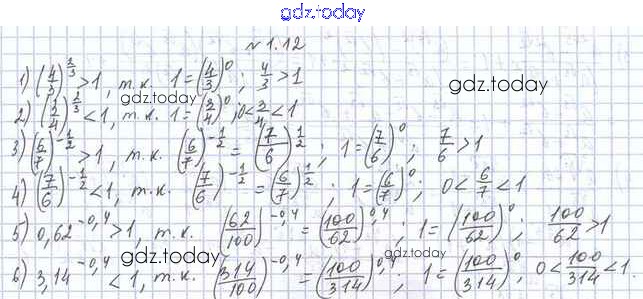 gdz.today
№ 1.12
1) (4/3)^(2/3) > 1, т.к. 1 = (4/3)^0; 4/3 > 1
gdz.today
gdz.today
2) (3/4)^(2/3) < 1, т.к. 1 = (3/4)^0; 0 < 3/4 < 1
3) (6/7)^(-1/2) > 1, т.к. (6/7)^(-1/2) = (7/6)^(1/2); 1 = (7/6)^0; 7/6 > 1
4) (7/6)^(-1/2) < 1, т.к. (7/6)^(-1/2) = (6/7)^(1/2); 1 = (6/7)^0; 0 < 6/7 < 1
5) 0,62^(-0,4) > 1, т.к. (62/100)^(-0,4) = (100/62)^(0,4); 1 = (100/62)^0; 100/62 > 1
gdz.today
gdz.today
6) 3,14^(-0,4) < 1, т.к. (314/100)^(-0,4) = (100/314)^(0,4); 1 = (100/314)^0; 0 < 100/314 < 1.